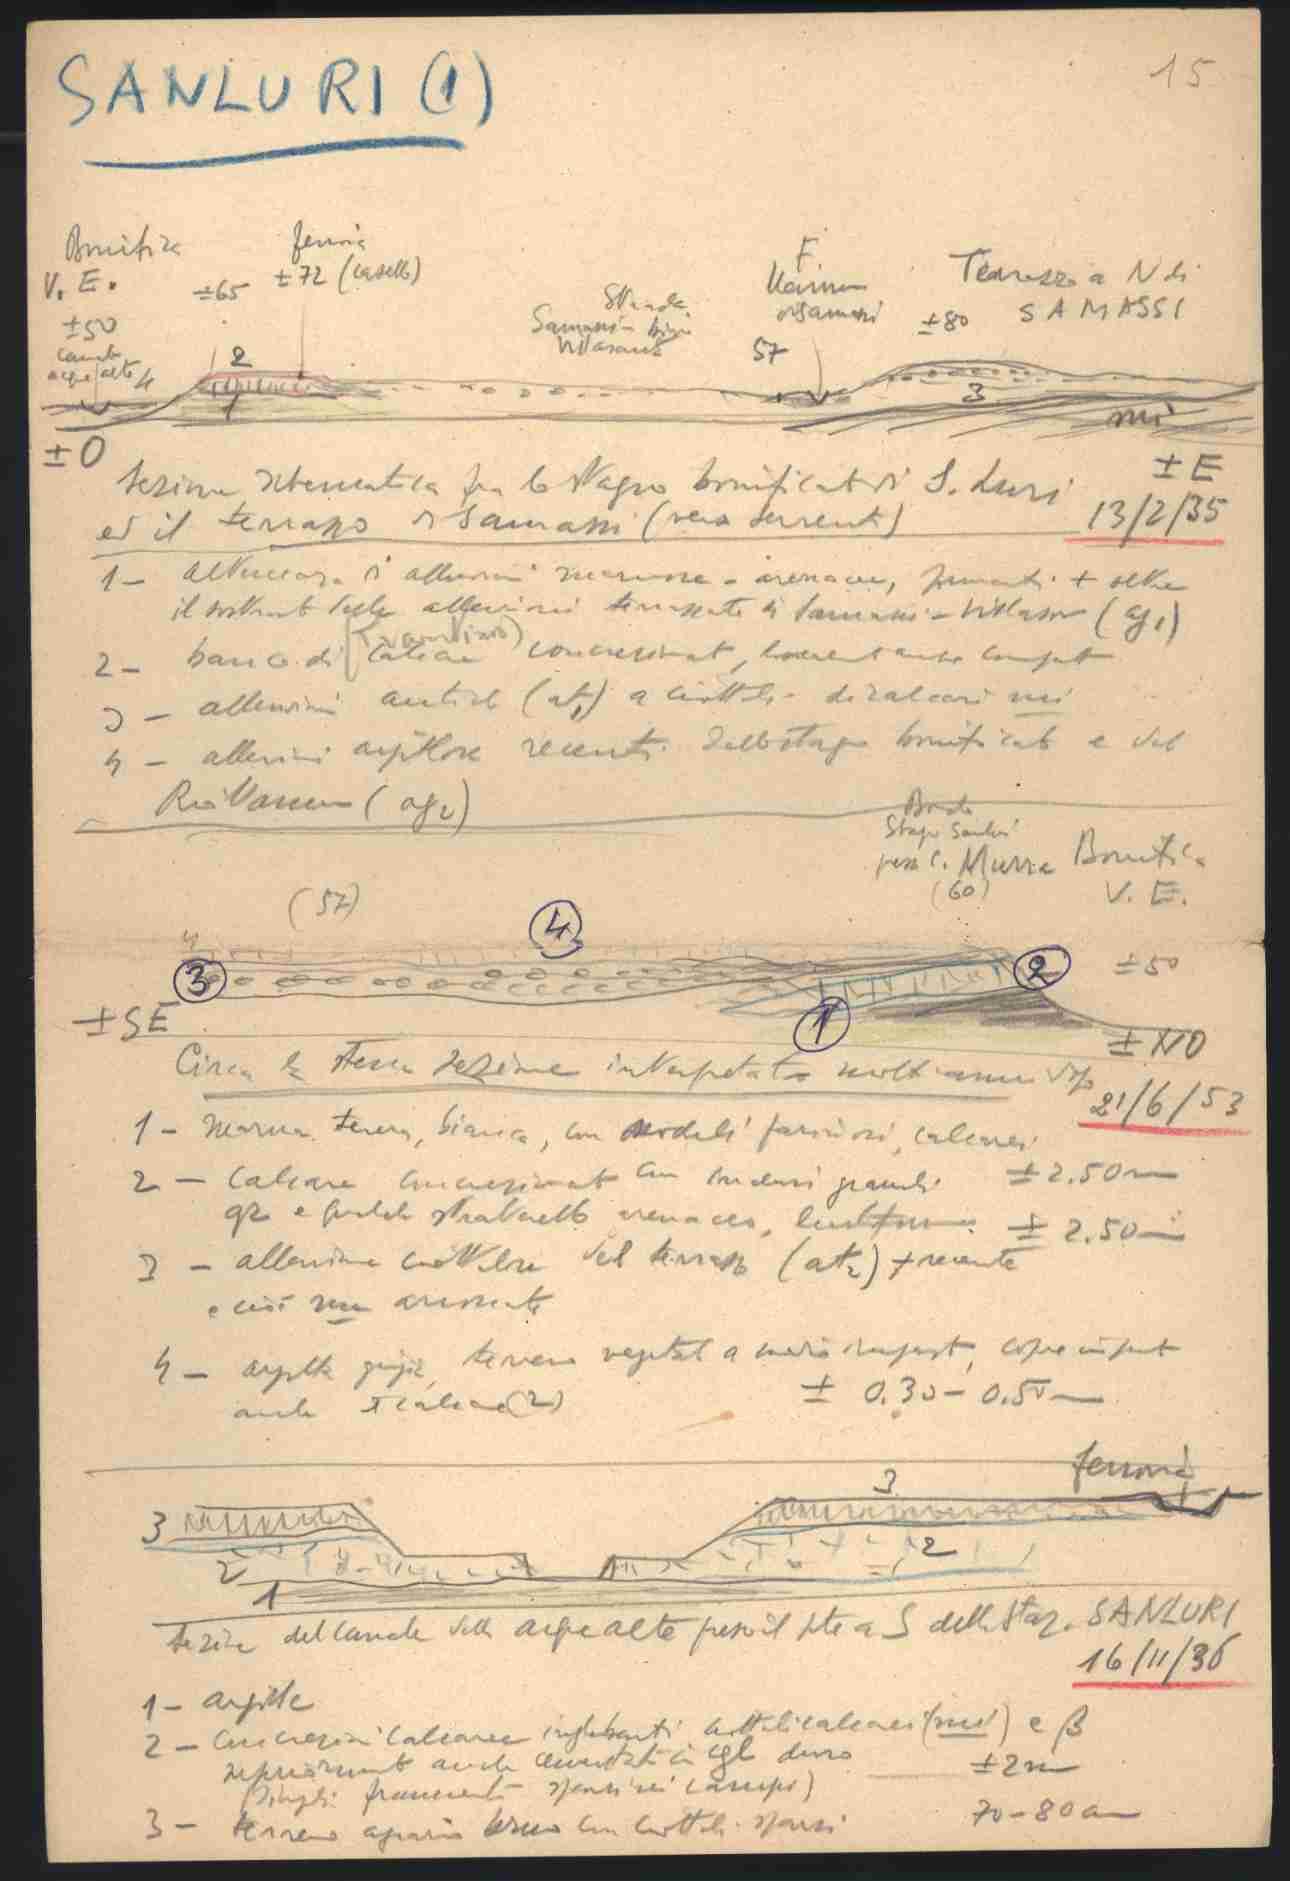 SANLURI (1)
15
Bonifica
V. E.
±50
acque alte 4
±65
ferrovia
±72 (casello)
Strada
Samassi -
F.
57
±80
Terrazzo a N di
SAMASSI
2
1
3
mi
±O
±E
Sezione schematica fra lo stagno bonificato di S. Luri
ed il terrazzo di Samassi (vero serrenti)
13/2/35
1 - alternanza di alluvioni marnose - arenacee, formanti + oltre
il sostrato delle alluvioni terrazzate di Samassi - Villasor (ag1)
2 - banco di (travertino) calcare concrezionato,
3 - alluvioni antiche (at1) a ciottoli di calcari mi
4 - alluvioni argillose recenti dello stagno bonificato e del
Rio (ag2)
Bordo
Stagno Sanluri
presso C. Murra
(60)
Bonifica
V. E.
(57)
4
4
3
2
±50
1
±SE
±NO
Circa la stessa sezione interpretata molti anni dopo
21/6/53
1 - marna tenera, bianca, con noduli farinosi, calcarei
±2.50 m
2 - calcare concrezionato con inclusi granuli
qz e qualche straterello arenaceo, ±2.50 m
3 - alluvione ciottolosa del terrazzo (at2) + recente
e così non arrossate
4 - argilla grigia, terreno vegetale a copre
anche il calcare (2)
± 0.30 - 0.50 m
ferrovia
3
3
2
2
1
Sezione del canale delle acque alte presso il pte a S della Staz. SANLURI
16/11/36
1 - argille
2 - concrezioni calcaree inglobanti ciottoli calcarei (mi) e β
superiormente anche cementati in cgl duro
±2 m
(Dingli frammenti sparsi nei campi)
3 - terreno agrario bruno con ciottoli sparsi
70-80 cm